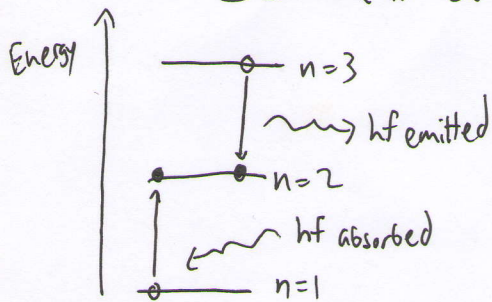 Energy
n=3
hf emitted
n=2
hf absorbed
n=1